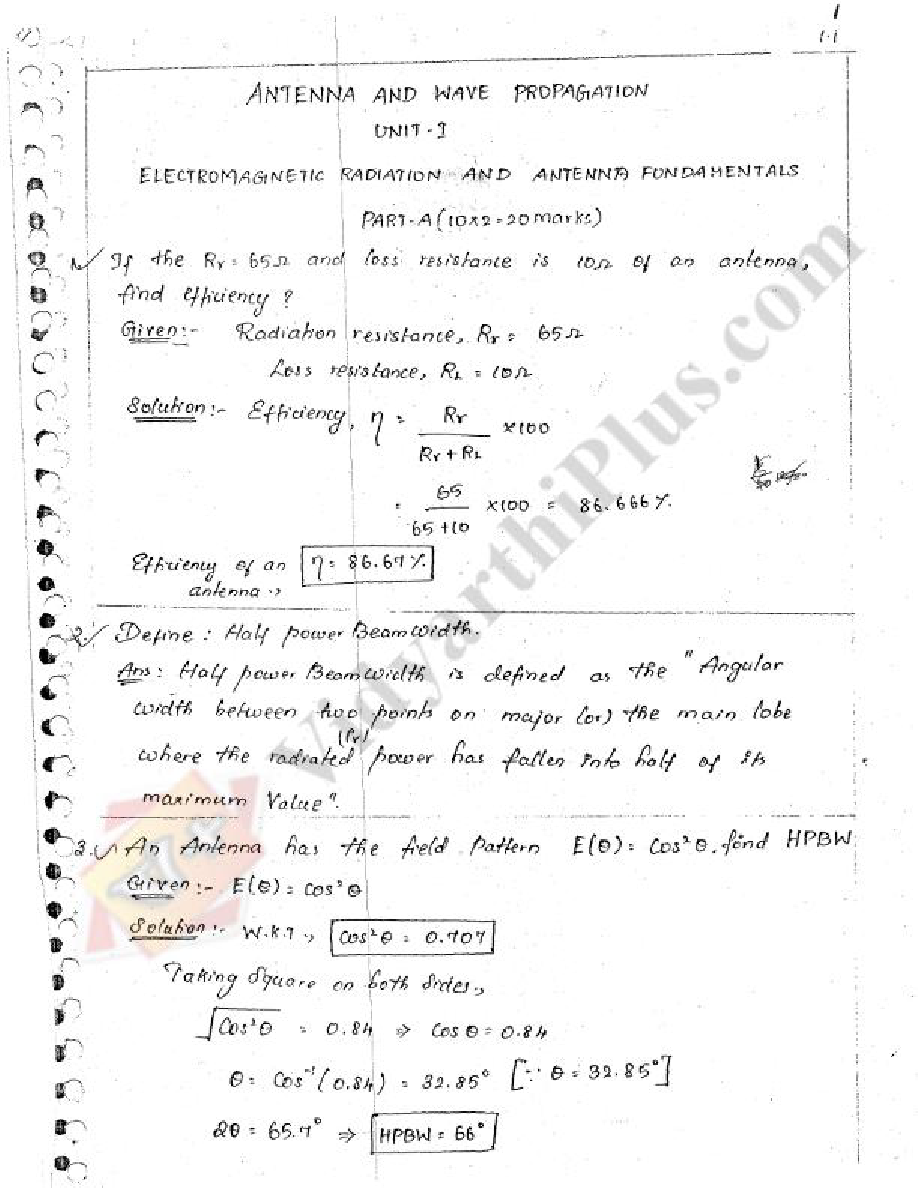 1
1.1
ANTENNA AND WAVE PROPAGATION
UNIT-I
ELECTROMAGNETIC RADIATION AND ANTENNA FONDAMENTALS
PART-A (10×2=20 marks)
1. If the Rr = 65Ω and loss resistance is 10Ω of an antenna,
find efficiency?
Given:- Radiation resistance, Rr = 65Ω
Loss resistance, RL = 10Ω
Solution:- Efficiency, η = Rr / (Rr + RL) ×100
= 65 / (65+10) ×100 = 86.666%.
Efficiency of an antenna :, η = 86.67%.
2. Define: Half power Beamwidth.
Ans: Half power Beamwidth is defined as the "Angular
width between two points on major (or) the main lobe
where the radiated (Pr) power has fallen into half of its
maximum Value".
3. An Antenna has the field Pattern E(θ) = cos²θ. find HPBW
Given:- E(θ) = cos²θ
Solution:- W.K.T, cos²θ = 0.707
Taking Square on both sides,
√cos²θ = 0.84 ⇒ cos θ = 0.84
θ = cos⁻¹(0.84) = 32.85° [∵ θ = 32.85°]
2θ = 65.7° ⇒ HPBW = 66°
VidyarthiPlus.com